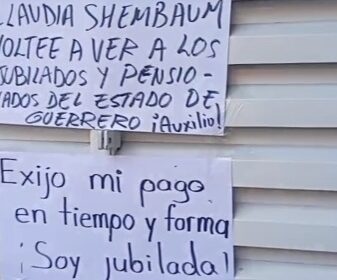 CLAUDIA SHEMBAUM
VOLTEE A VER A LOS
JUBILADOS Y PENSIO-
NADOS DEL ESTADO DE
GUERRERO ¡Auxilio!
Exijo mi pago
en tiempo y forma
¡Soy jubilada!